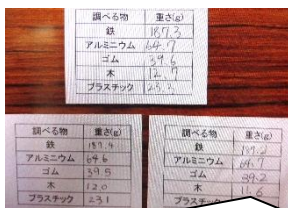 調べる物 重さ(g)
鉄 187.3
アルミニウム 64.7
ゴム 39.6
木 12.7
プラスチック 23.3
調べる物 重さ(g)
鉄
アルミニウム 64.6
ゴム 39.5
木 12.0
プラスチック 23.1
調べる物 重さ(g)
鉄
アルミニウム 64.7
ゴム 39.2
木 11.6
プラスチック